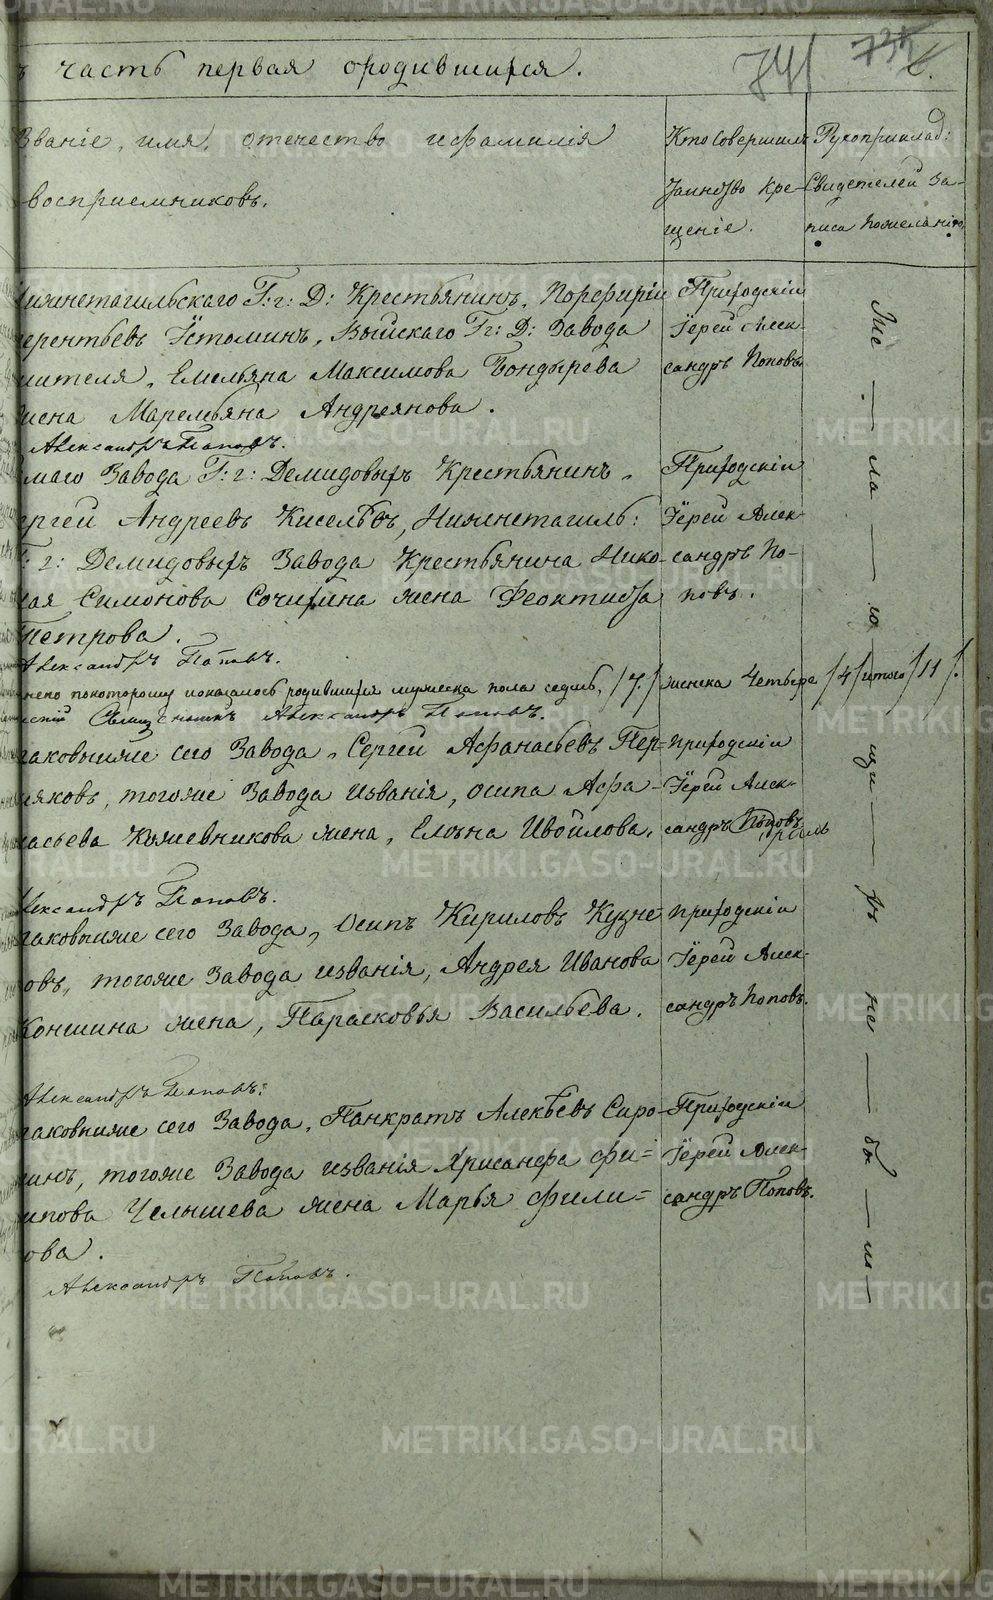 741 735
ъ часть первая ородившихся.
Званіе, имя, отечество ифамилія
восприемниковъ.
Кто Совершилъ
Таинство Кре-
щеніе.
Рукоприклад:
Свидетелей За-
писа пожеланію
Нижнетагильскаго Г:г: Д: Крестьянинъ, Порфирій
ерентьевъ Устоминъ, Выйскаго Гг: Д: Завода
жителя, Емельяна Максимова Бондырева
жена Маремьяна Андреянова.
Приходскій
Їерей Алек-
сандръ Поповъ
Александръ Поповъ.
маго Завода Г:г: Демидовыхъ Крестьянинъ,
ергей Андреевъ Киселевъ, Нижнетагиль:
Г: г: Демидовыхъ Завода Крестьянина Нико-
лая Симонова Сочихина жена Феоктиста
Петрова.
Приходскій
Їерей Алек-
сандръ По-
повъ.
Александръ Поповъ.
покоторому показалось родившихся мужеска пола седмь, /7./ женска Четыре /4/ итого /11/.
Священникъ Александръ Поповъ.
таковыяже сего Завода, Сергей Афанасьевъ Пер-
няковъ, тогоже Завода изванія, осипа Афа-
насьева Кожевникова жена, Елена Ивойлова.
Приходскій
Їерей Алек-
сандръ Поповъ
Александръ Поповъ.
таковыяже сего Завода, Осипъ Кириловъ Кузне
овъ, тогоже Завода изванія, Андрея Иванова
Коншина жена, Парасковья Васильева.
Приходскій
Їерей Алек-
сандръ Поповъ.
Александръ Поповъ:
таковыяже сего Завода, Панкратъ Алексѣевъ Сиро-
инъ, тогоже Завода изванія Хрисанфа фи=
ипова Челышева жена Марья фили=
ова.
Приходскій
Їерей Алек-
сандръ Поповъ.
Александръ Поповъ.
METRIKI.GASO-URAL.RU